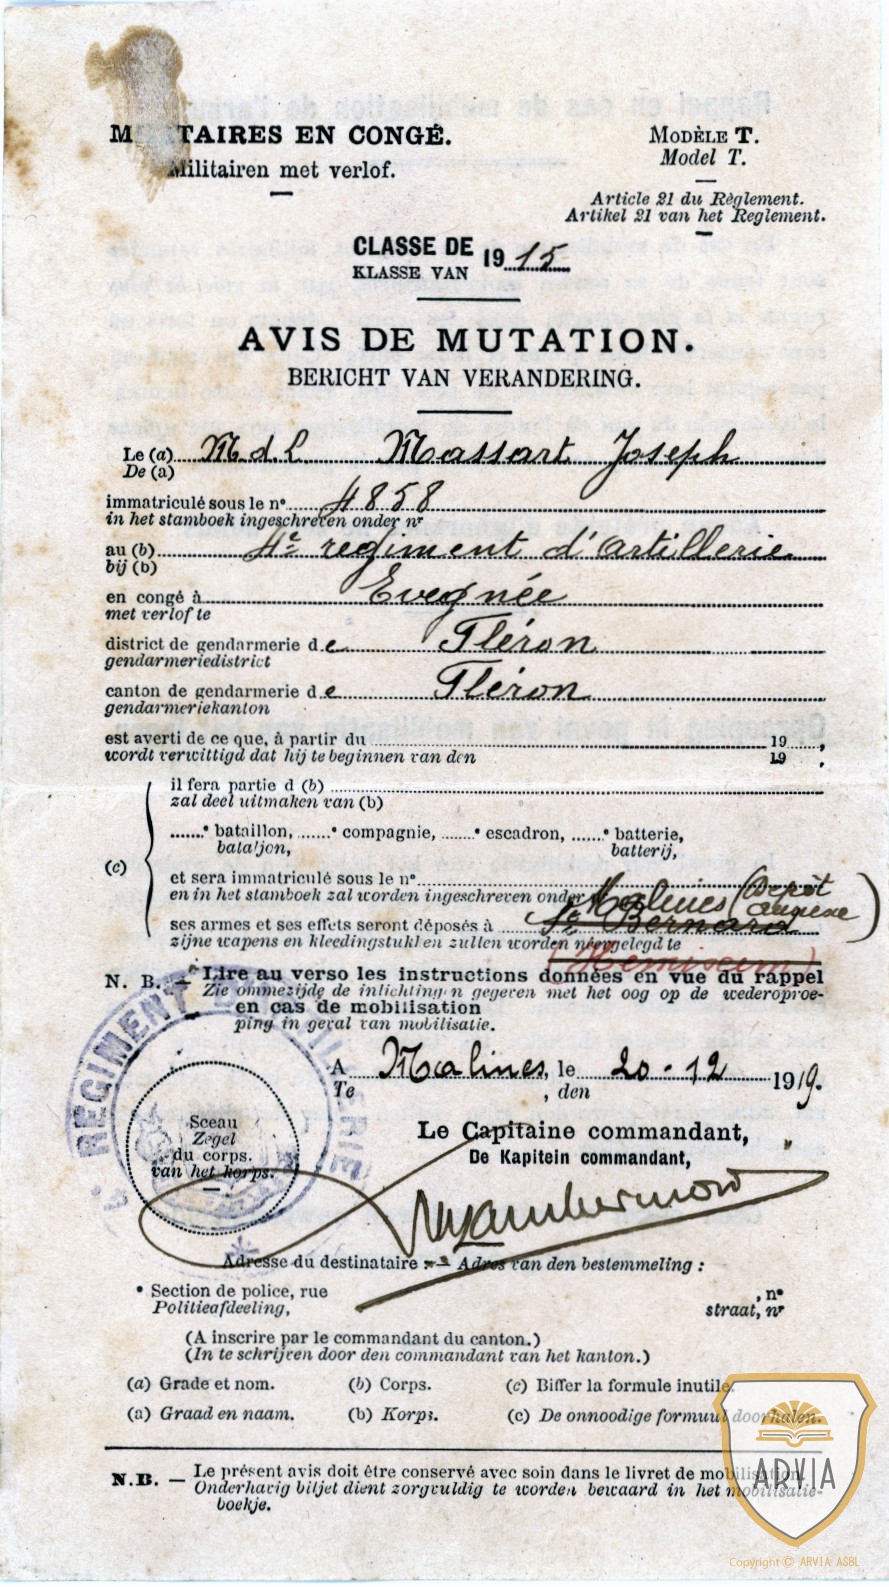 MILITAIRES EN CONGÉ.
Militairen met verlof.
MODÈLE T.
Model T.
Article 21 du Règlement.
Artikel 21 van het Reglement.
CLASSE DE
KLASSE VAN
1915
AVIS DE MUTATION.
BERICHT VAN VERANDERING.
Le (a) M.d.L Massart Joseph
De (a)
immatriculé sous le n° 4858
in het stamboek ingeschreven onder nr
au (b) 4e regiment d'artillerie
bij (b)
en congé à Evegnée
met verlof te
district de gendarmerie de Fléron
gendarmeriedistrict
canton de gendarmerie de Fléron
gendarmeriekanton
est averti de ce que, à partir du 19 ,
wordt verwittigd dat hij te beginnen van den 19 ,
(c)
il fera partie d (b)
zal deel uitmaken van (b)
e bataillon, e compagnie, e escadron, e batterie,
bataljon, batterij,
et sera immatriculé sous le n°
en in het stamboek zal worden ingeschreven onder
Malines (Dépôt annexe)
ses armes et ses effets seront déposés à St Bernard
zijne wapens en kleedingstukken zullen worden neergelegd te
(Hemixem)
N. B. — Lire au verso les instructions données en vue du rappel
Zie ommezijde de inlichtingen gegeven met het oog op de wederoproe-
en cas de mobilisation
ping in geval van mobilisatie.
A Malines, le 20-12 1919.
Te , den
REGIMENT
Sceau
Zegel
du corps.
van het korps.
Le Capitaine commandant,
De Kapitein commandant,
Adresse du destinataire : — Adres van den bestemmeling :
* Section de police, rue , n°
Politieafdeeling, straat, nr
(A inscrire par le commandant du canton.)
(In te schrijven door den commandant van het kanton.)
(a) Grade et nom. (b) Corps. (c) Biffer la formule inutile.
(a) Graad en naam. (b) Korps. (c) De onnoodige formuul doorhalen.
N.B. — Le présent avis doit être conservé avec soin dans le livret de mobilisation.
Onderhavig biljet dient zorgvuldig te worden bewaard in het mobilisatie-
boekje.
ARVIA
Copyright © ARVIA ASBL